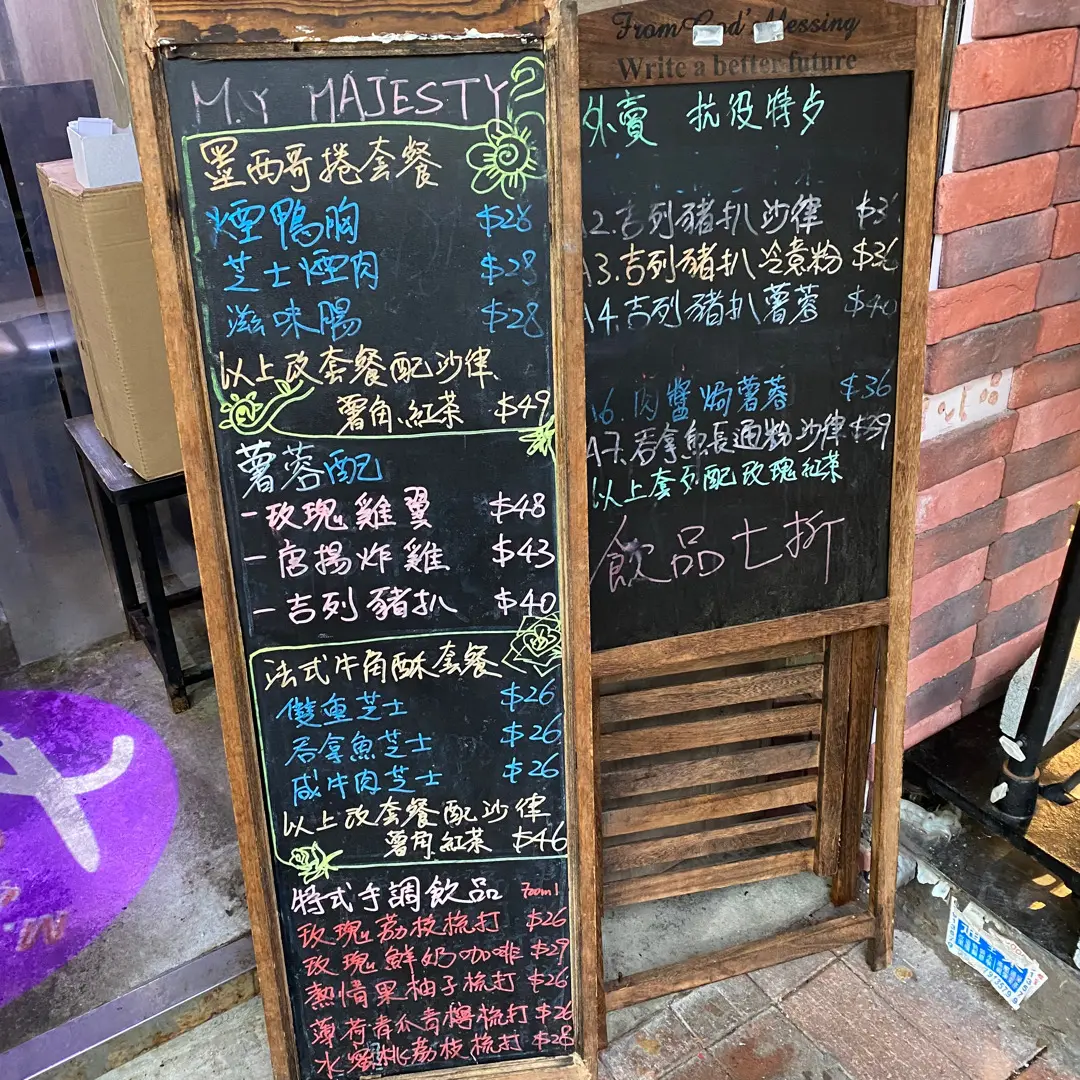 MY MAJESTY
墨西哥捲套餐
煙鴨胸 $28
芝士煙肉 $28
滋味腸 $28
以上改套餐配沙律
薯角、紅茶 $49
薯蓉配
-玫瑰雞翼 $48
-唐揚炸雞 $43
-吉列豬扒 $40
法式牛角酥套餐
雙重芝士 $26
吞拿魚芝士 $26
咸牛肉芝士 $26
以上改套餐配沙律
薯角紅茶 $46
特式手調飲品 700ml
玫瑰荔枝梳打 $26
玫瑰鮮奶咖啡 $29
熱情果柚子梳打 $26
薄荷青瓜青檸梳打 $26
水蜜桃荔枝梳打 $28
From God's blessing
Write a better future
外賣 抗役特占
A2.吉列豬扒沙律
A3.吉列豬扒冷意粉 $36
A4.吉列豬扒薯蓉 $40
A6.肉醬焗薯蓉 $36
A7.吞拿魚長通粉沙律 $39
以上套列配玫瑰紅茶
飲品七折